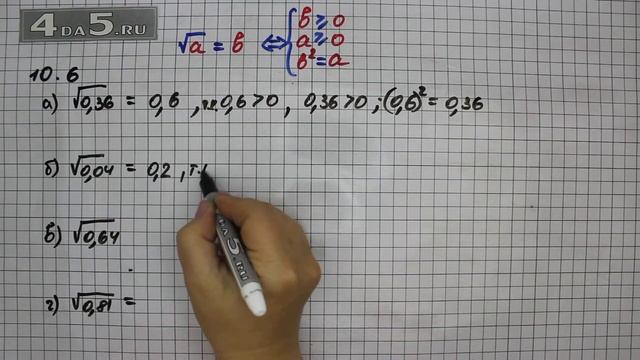 4DA5.RU
√a = b ⇔ { b ⩾ 0
a ⩾ 0
b² = a
10.6
а) √0,36 = 0,6 , т.к. 0,6 > 0 , 0,36 > 0 ; (0,6)² = 0,36
б) √0,04 = 0,2 , т.к
в) √0,64
г) √0,81 =
4DA5.RU